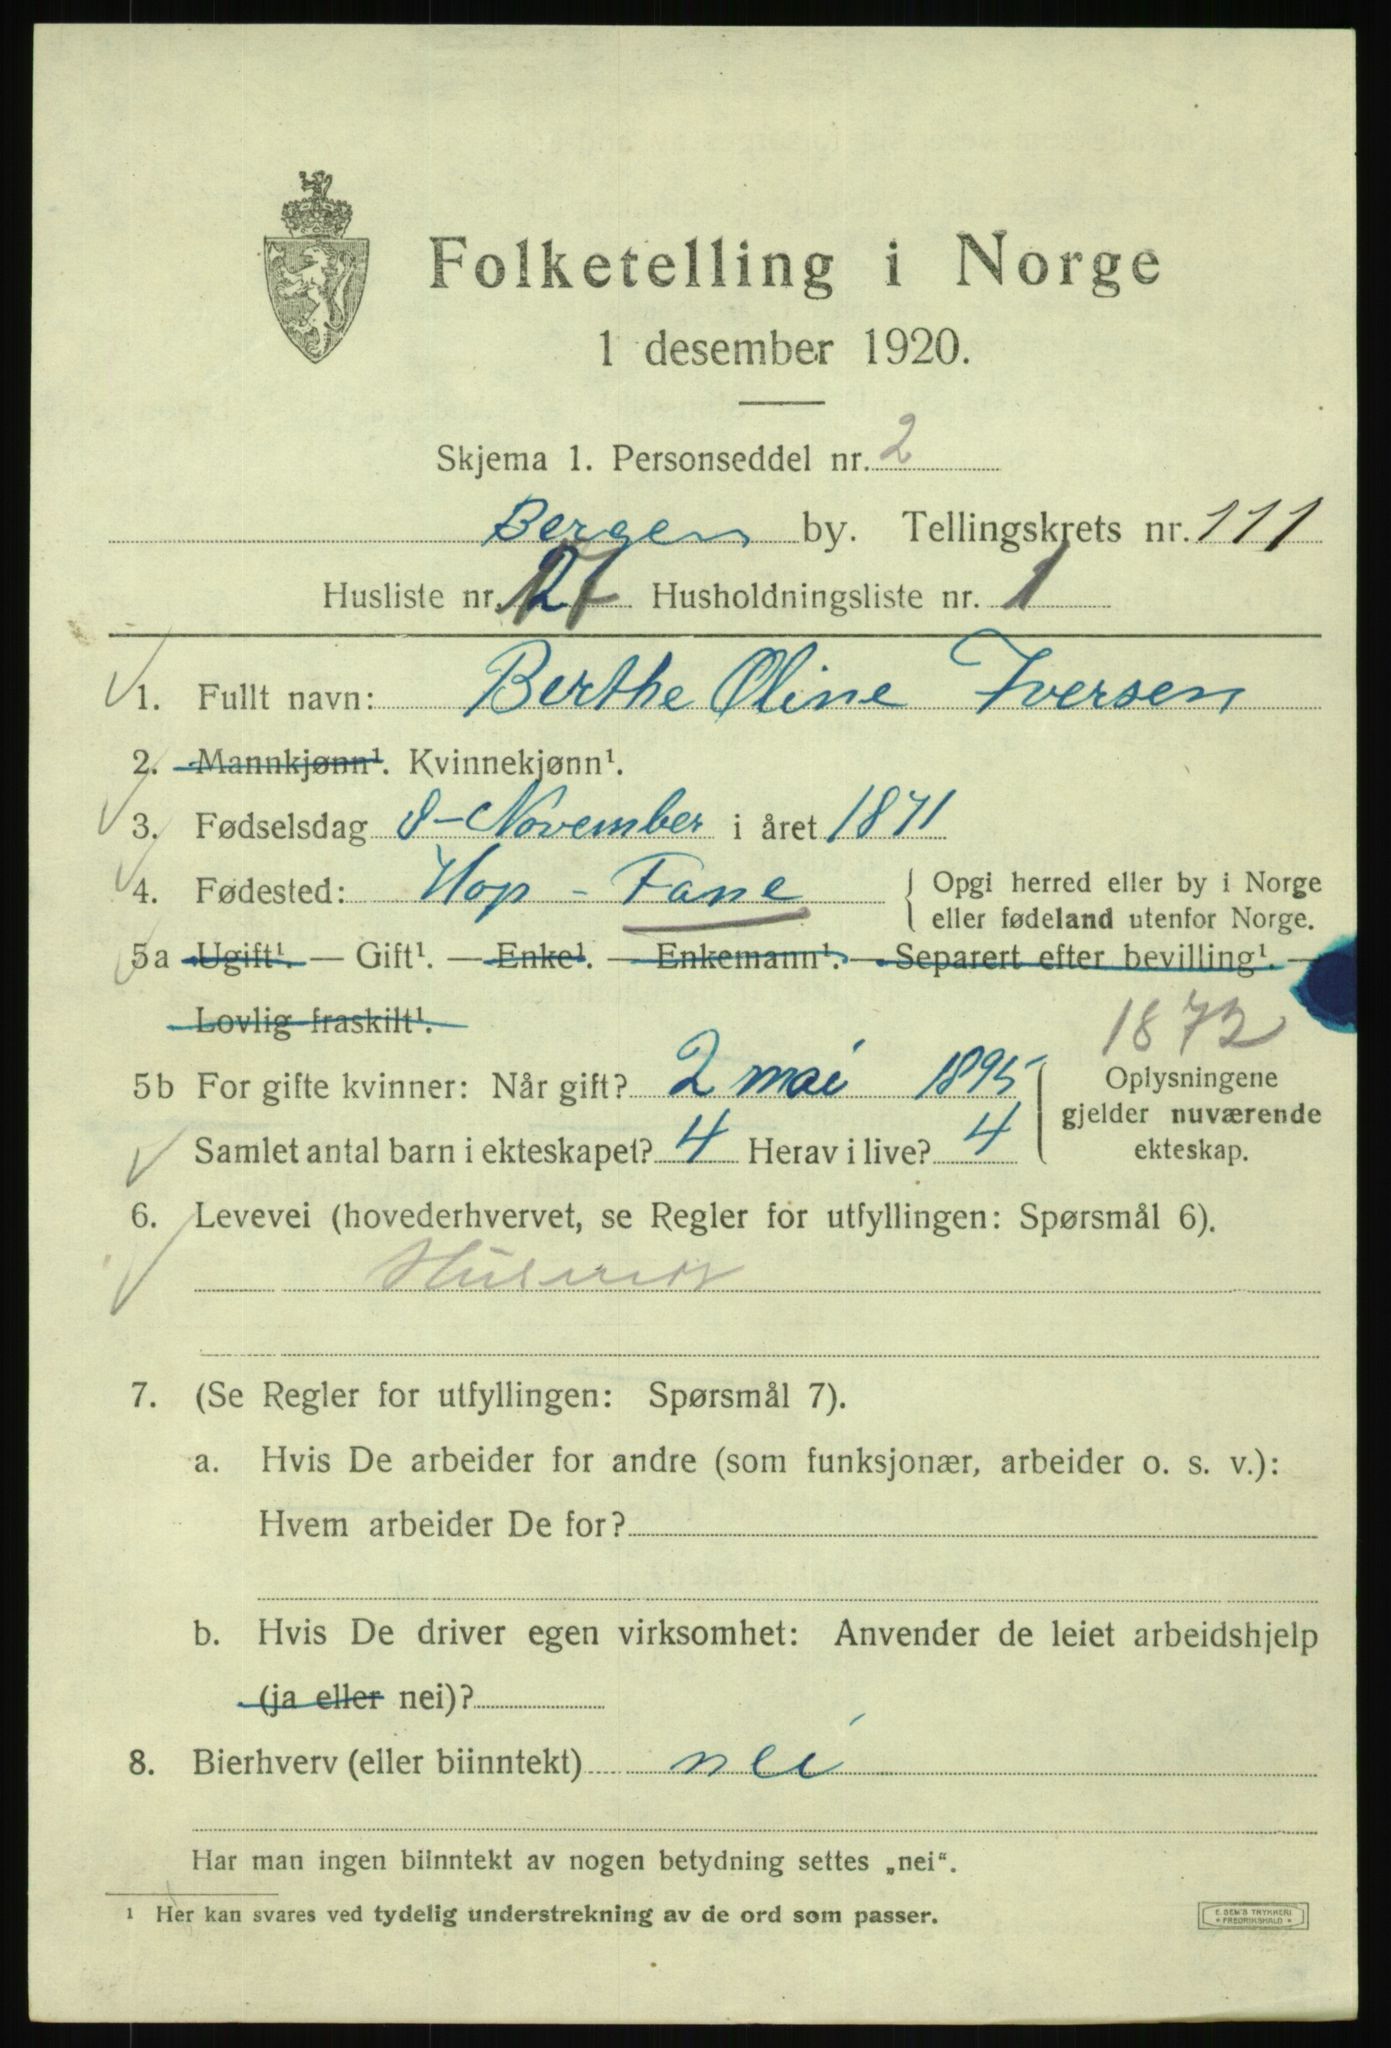 Folketelling i Norge
1 desember 1920.
Skjema 1. Personseddel nr. 2
Bergen by. Tellingskrets nr. 111
Husliste nr. 27 Husholdningsliste nr. 1
1. Fullt navn: Berthe Oline Iversen
2. Mannkjønn¹. Kvinnekjønn¹.
3. Fødselsdag 8-November i året 1871
4. Fødested: Hop - Fane { Opgi herred eller by i Norge
eller fødeland utenfor Norge.
5a Ugift¹. — Gift¹. — Enke¹. — Enkemann¹. — Separert efter bevilling¹. —
Lovlig fraskilt¹.
1872
5b For gifte kvinner: Når gift? 2 mai 1895
Samlet antal barn i ekteskapet? 4 Herav i live? 4
Oplysningene
gjelder nuværende
ekteskap.
6. Levevei (hovederhvervet, se Regler for utfyllingen: Spørsmål 6).
7. (Se Regler for utfyllingen: Spørsmål 7).
a. Hvis De arbeider for andre (som funksjonær, arbeider o. s. v.):
Hvem arbeider De for?
b. Hvis De driver egen virksomhet: Anvender de leiet arbeidshjelp
(ja eller nei)?
8. Bierhverv (eller biinntekt) nei
Har man ingen biinntekt av nogen betydning settes „nei“.
¹ Her kan svares ved tydelig understrekning av de ord som passer.
E. SEM'S TRYKKERI
* FREDRIKSHALD *